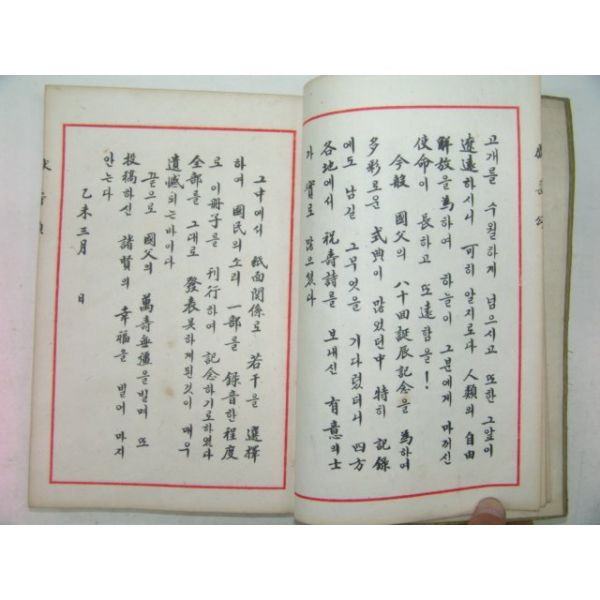 고개를 수월하게 넘으시고 또한 그앞이
遼遠하시니 可히 알지로다 人類의 自由
解放을 爲하여 하늘이 그분에게 마끼신
使命이 長하고 또 遠함을!
今般 國父의 八十回誕辰記念을 爲하여
多彩로운 式典이 많았던中 特히 記錄
에도 남길 그무엇을 기다렸더니 四方
各地에서 祝壽詩를 보내신 有意의 士
가 實로 많으섰다
그中에서 紙面關係로 若干을 選擇
하여 國民의 소리 一部를 錄音한 程度
로 이 冊子를 刊行하여 記念하기로하였다
全部를 그대로 發表못하게된것이 매우
遺憾되는바이다
끝으로 國父의 萬壽無疆을 빌며 또
投稿하신 諸賢의 幸福을 빌어 마지
안는다
乙未三月 日